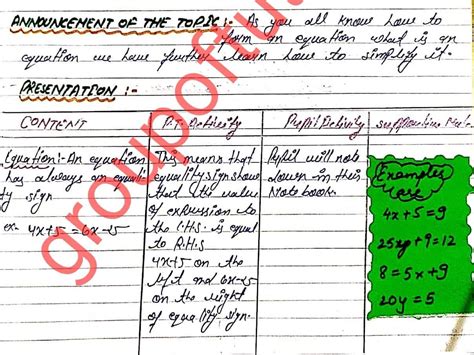 ANNOUNCEMENT OF THE TOPIC :- As you all know how to
form an equation what is an
equation we have further learn how to simplify it.
PRESENTATION :-
CONTENT
P.T. Activity
Pupil Activity
Equation:- An equation
has always an equali-
ty sign
ex- 4x+5 = 6x-5
This means that
equality sign show
that the value
of expression to
the L.H.S is equal
to R.H.S
4x+5 on the
left and 6x-5
on the right
of equality sign.
Pupil will note
down in their
Notebook.
Examples
are
4x+5=9
25xy+9=12
8=5x+9
20y=5
groupoftu